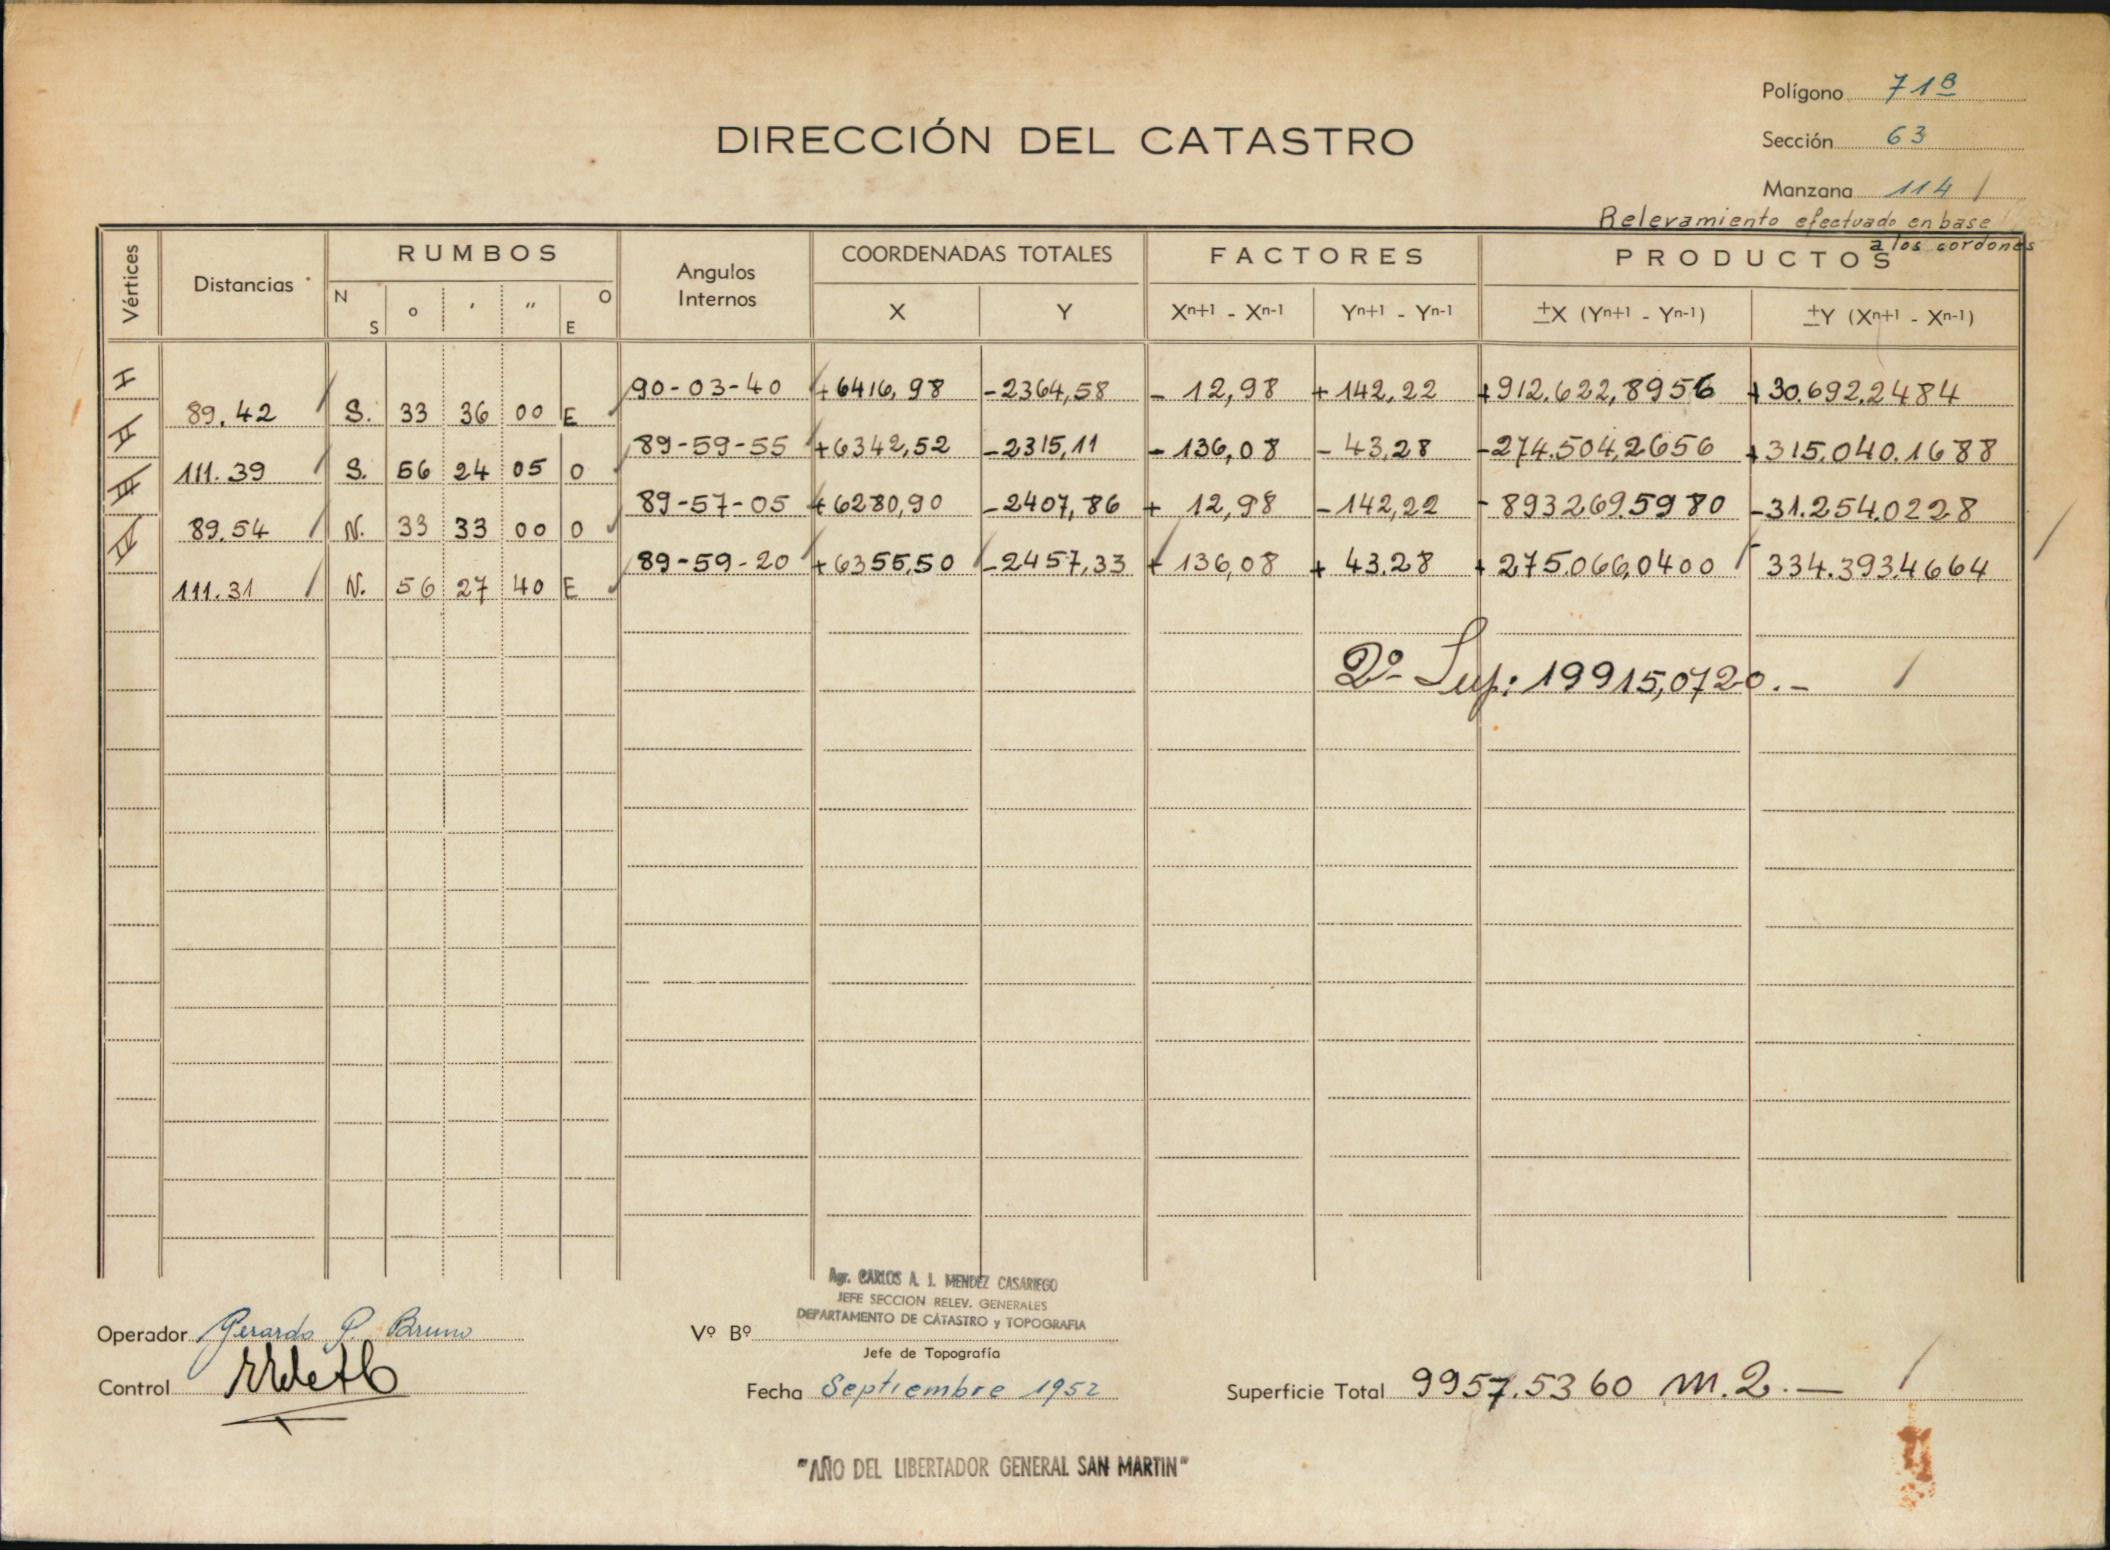 Polígono 71B
DIRECCIÓN DEL CATASTRO
Sección 63
Manzana 114
Relevamiento efectuado en base
a los cordones
Vértices Distancias RUMBOS Angulos Internos COORDENADAS TOTALES FACTORES PRODUCTOS
N S ° ' " E O X Y Xn+1 - Xn-1 Yn+1 - Yn-1 ±X (Yn+1 - Yn-1) ±Y (Xn+1 - Xn-1)
I 90-03-40 +6416,98 -2364,58 - 12,98 +142,22 +912.622,8956 +30.692.2484
89.42 S. 33 36 00 E
II 89-59-55 +6342,52 -2315,11 -136,08 - 43,28 -274.504,2656 +315.040.1688
111.39 S. 56 24 05 O
III 89-57-05 +6280,90 -2407,86 + 12,98 -142,22 -893269.5980 -31.254.0228
89.54 N. 33 33 00 O
IV 89-59-20 +6355,50 -2457,33 + 136,08 + 43.28 +275.066,0400 -334.393.4664
111.31 N. 56 27 40 E
2º Sup: 19915,0720.-
Agr. CARLOS A. J. MENDEZ CASARIEGO
JEFE SECCION RELEV. GENERALES
DEPARTAMENTO DE CATASTRO y TOPOGRAFIA
Operador Gerardo P. Bruno
Vº Bº
Jefe de Topografía
Control
Fecha Septiembre 1952
Superficie Total 9957.5360 m.2.-
"AÑO DEL LIBERTADOR GENERAL SAN MARTIN"